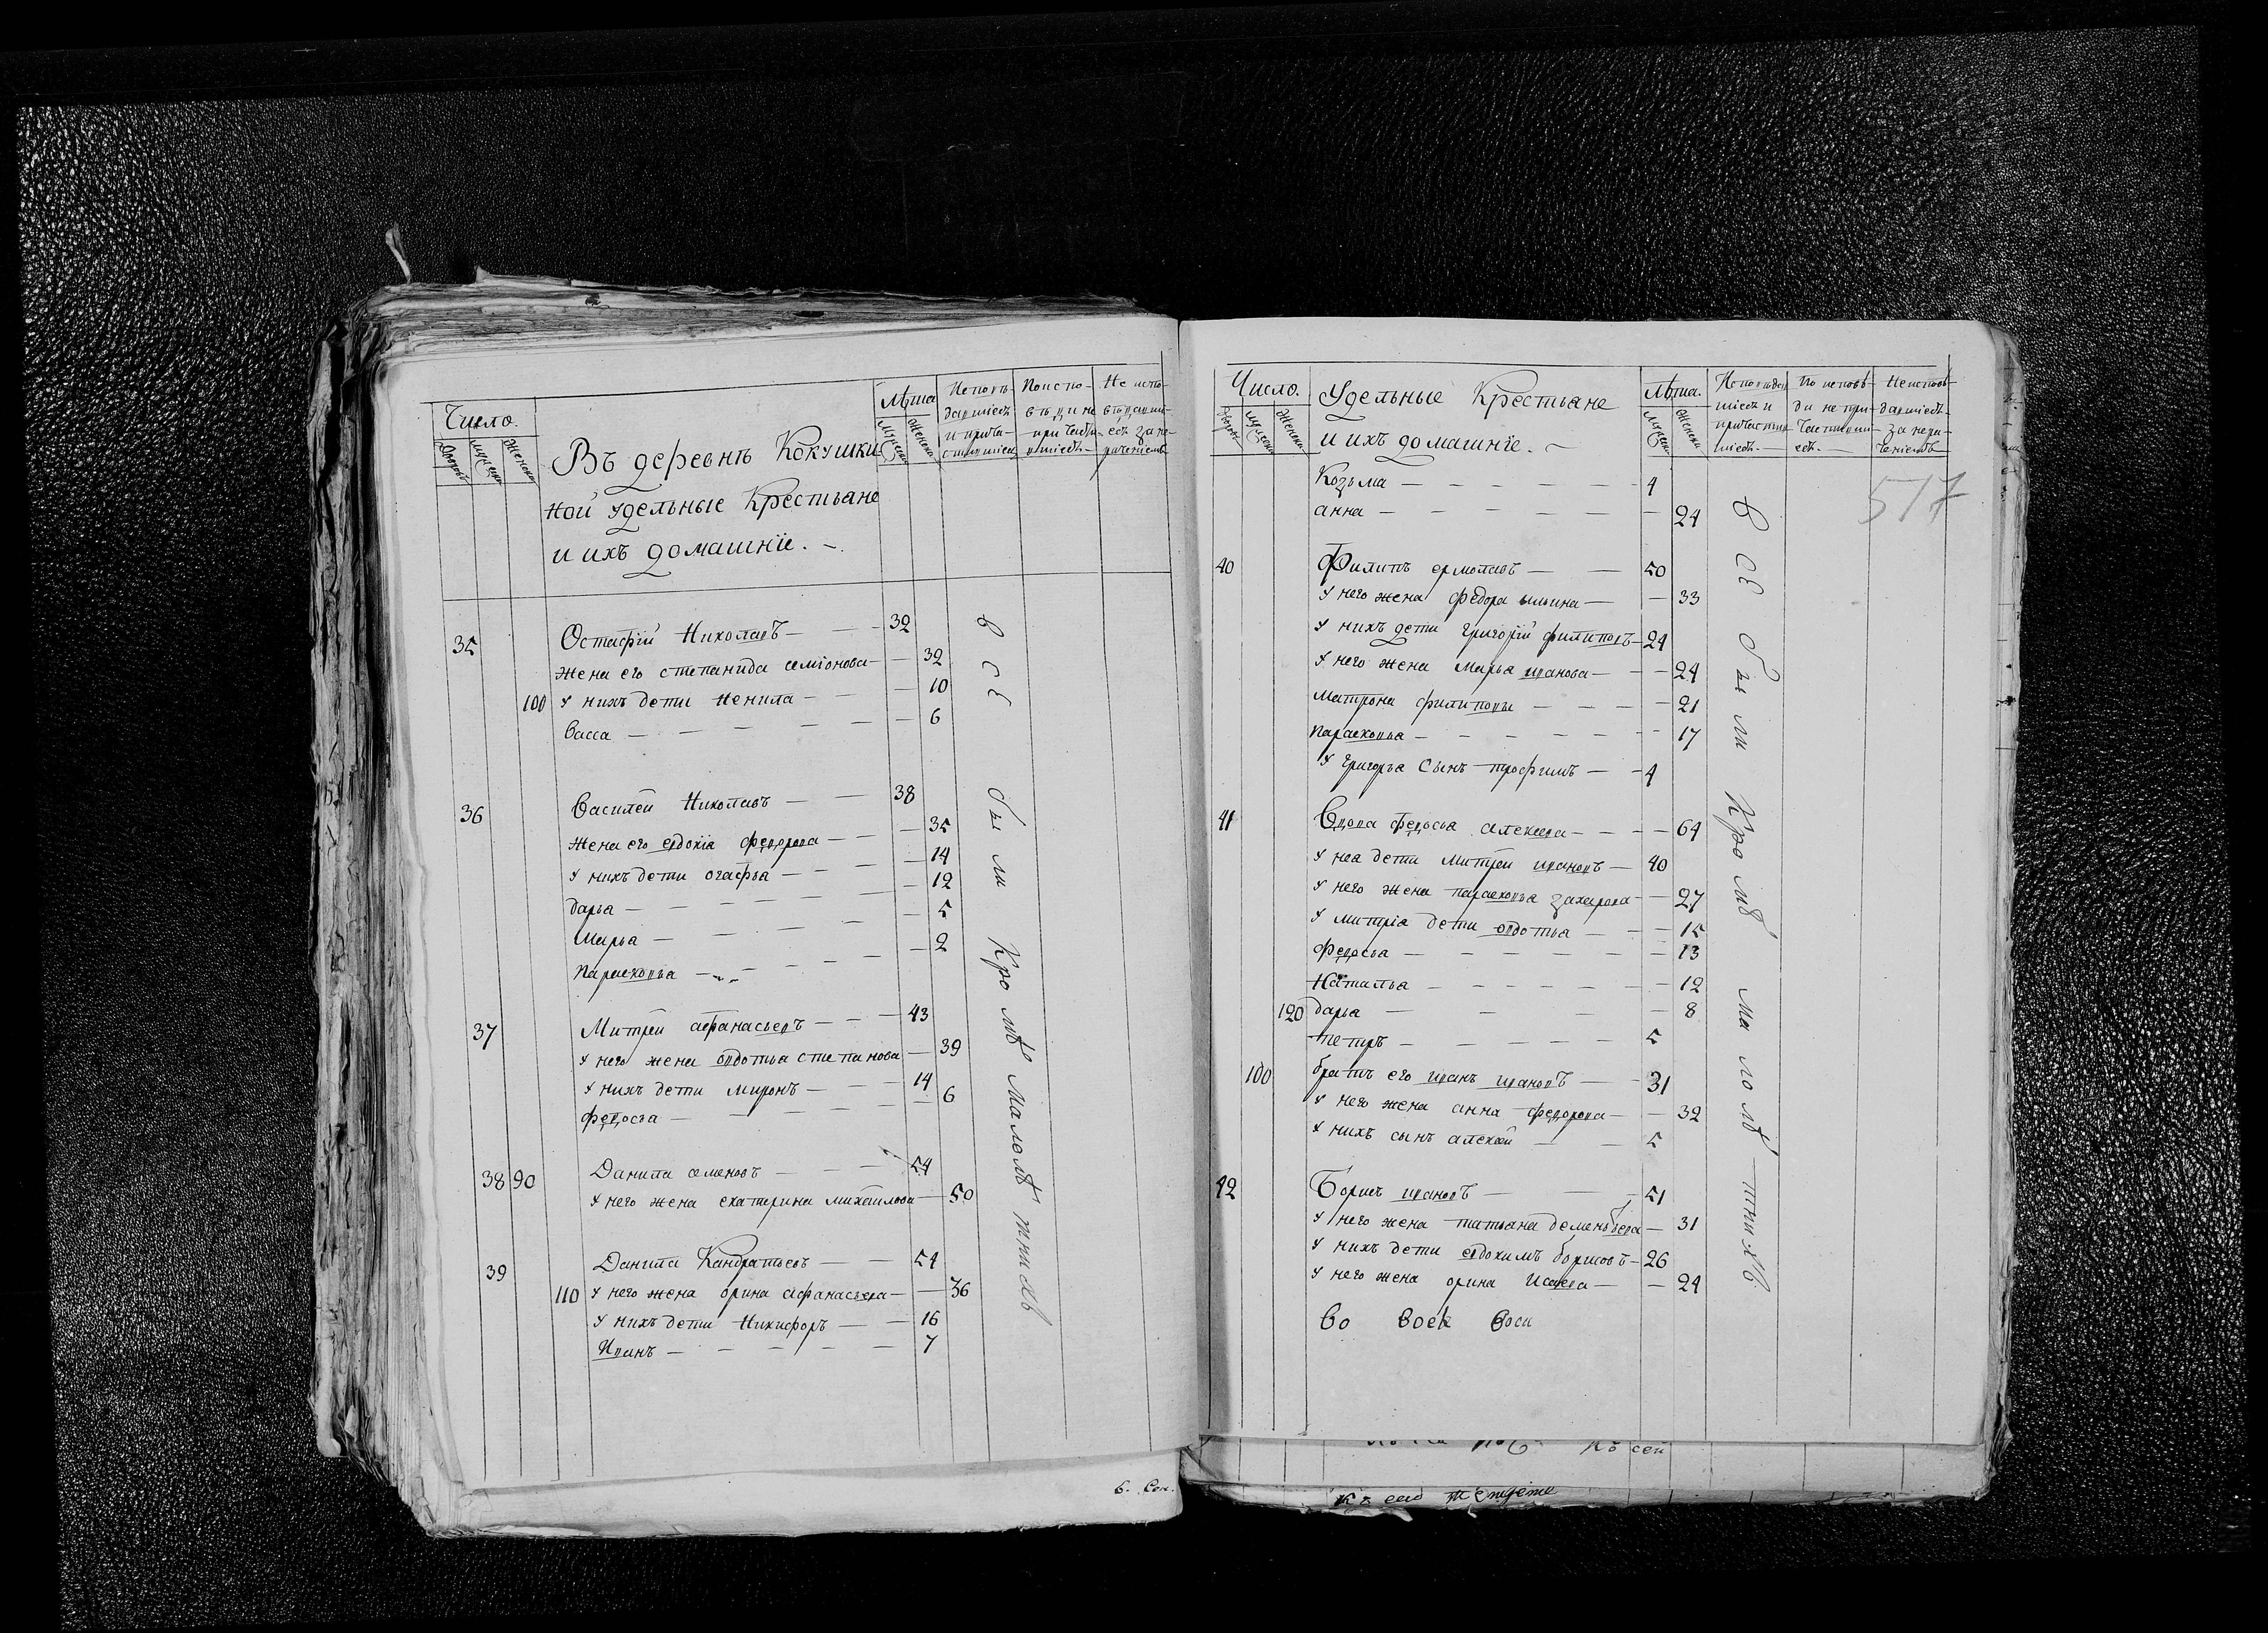 Число.
Дворовъ Мужеска Женска
Въ деревнѣ Кокушки
ной удельные Крестьяне
и ихъ домашнiе.
Лѣта
Мужеска Женска
Исповѣ-
давшiесь
и прича-
стившiесь
По испо-
вѣди не
причасти-
вшiесь
Не испо-
вѣдавши-
есь за не-
раченiемъ
35 Остафiй Николаевъ — 32
жена его степанида семiонова — 32
100 у нихъ дети ненила — 10
васса — 6
36 Василей Николаевъ — 38
жена его евдокiа федорова — 35
у нихъ дети огафьа — 14
дарьа — 12
Марьа — 5
Парасковьа — 2
37 Митрей афанасьевъ — 43
у него жена овдотьа степанова — 39
у нихъ дети миронъ — 14
федосьа — 6
38 90 Данила семеновъ — 54
у него жена екатерина михаилова — 50
39 Данила Кандратьевъ — 54
110 у него жена орина афанасьева — 36
у нихъ дети Никифоръ — 16
Иванъ — 7
все были Кромѣ малолѣтнихъ
6. Сен.
Число.
Дворовъ Мужеска Женска
Удельные Крестьяне
и ихъ домашнiе.
Лѣта.
Мужеска Женска
Исповѣдав
шiесь и
причастив
шiесь.
По исповѣ-
ди не при-
частивши-
есь.
Не исповѣ-
давшiесь
за нера-
ченiемъ
517
Козьма — 4
анна — 24
40 Филипъ ермолаевъ — 50
у него жена федора ильина — 33
у нихъ дети григорiй филиповъ — 24
у него жена Марьа иванова — 24
матрона филиповы — 21
Парасковьа — 17
у григорьа сынъ трофимъ — 4
41 Вдова федосьа алексеева — 64
у неа дети митрей ивановъ — 40
у него жена парасковьа захарова — 27
у митрiа дети овдотьа — 15
федосьа — 13
Натальа — 12
120 дарьа — 8
петръ — 5
100 братъ его иванъ ивановъ — 31
у него жена анна федорова — 32
у нихъ сынъ алексей — 5
42 Борисъ ивановъ — 51
у него жена татьана дементьева — 31
у нихъ дети евдокимъ борисовъ — 26
у него жена орина Исаева — 24
все были Кромѣ малолѣтнихъ